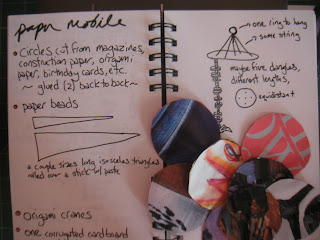 paper mobile
• Circles cut from magazines,
construction paper, origami
paper, birthday cards, etc.
~ glued (2) back to back ~
• paper beads
• couple sizes long isosceles triangles
rolled over a stick w/ paste
• Origami cranes
• one corrugated cardboard
one ring to hang
some string
maybe five dangles,
different lengths,
equidistant